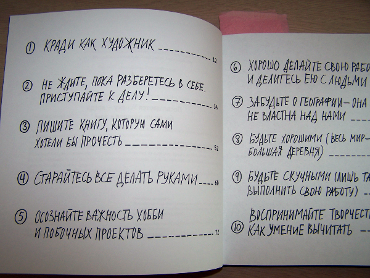 ① КРАДИ КАК ХУДОЖНИК
② НЕ ЖДИТЕ, ПОКА РАЗБЕРЕТЕСЬ В СЕБЕ
ПРИСТУПАЙТЕ К ДЕЛУ!
③ ПИШИТЕ КНИГУ, КОТОРУЮ САМИ
ХОТЕЛИ БЫ ПРОЧЕСТЬ
④ СТАРАЙТЕСЬ ВСЕ ДЕЛАТЬ РУКАМИ
⑤ ОСОЗНАЙТЕ ВАЖНОСТЬ ХОББИ
И ПОБОЧНЫХ ПРОЕКТОВ
⑥ ХОРОШО ДЕЛАЙТЕ СВОЮ РАБО
И ДЕЛИТЕСЬ ЕЮ С ЛЮДЬМИ
⑦ ЗАБУДЬТЕ О ГЕОГРАФИИ - ОНА
НЕ ВЛАСТНА НАД НАМИ
⑧ БУДЬТЕ ХОРОШИМИ (ВЕСЬ МИР-
БОЛЬШАЯ ДЕРЕВНЯ)
⑨ БУДЬТЕ СКУЧНЫМИ (ЛИШЬ ТА
ВЫПОЛНИТЬ СВОЮ РАБОТУ)
⑩ ВОСПРИНИМАЙТЕ ТВОРЧЕСТ
КАК УМЕНИЕ ВЫЧИТАТЬ